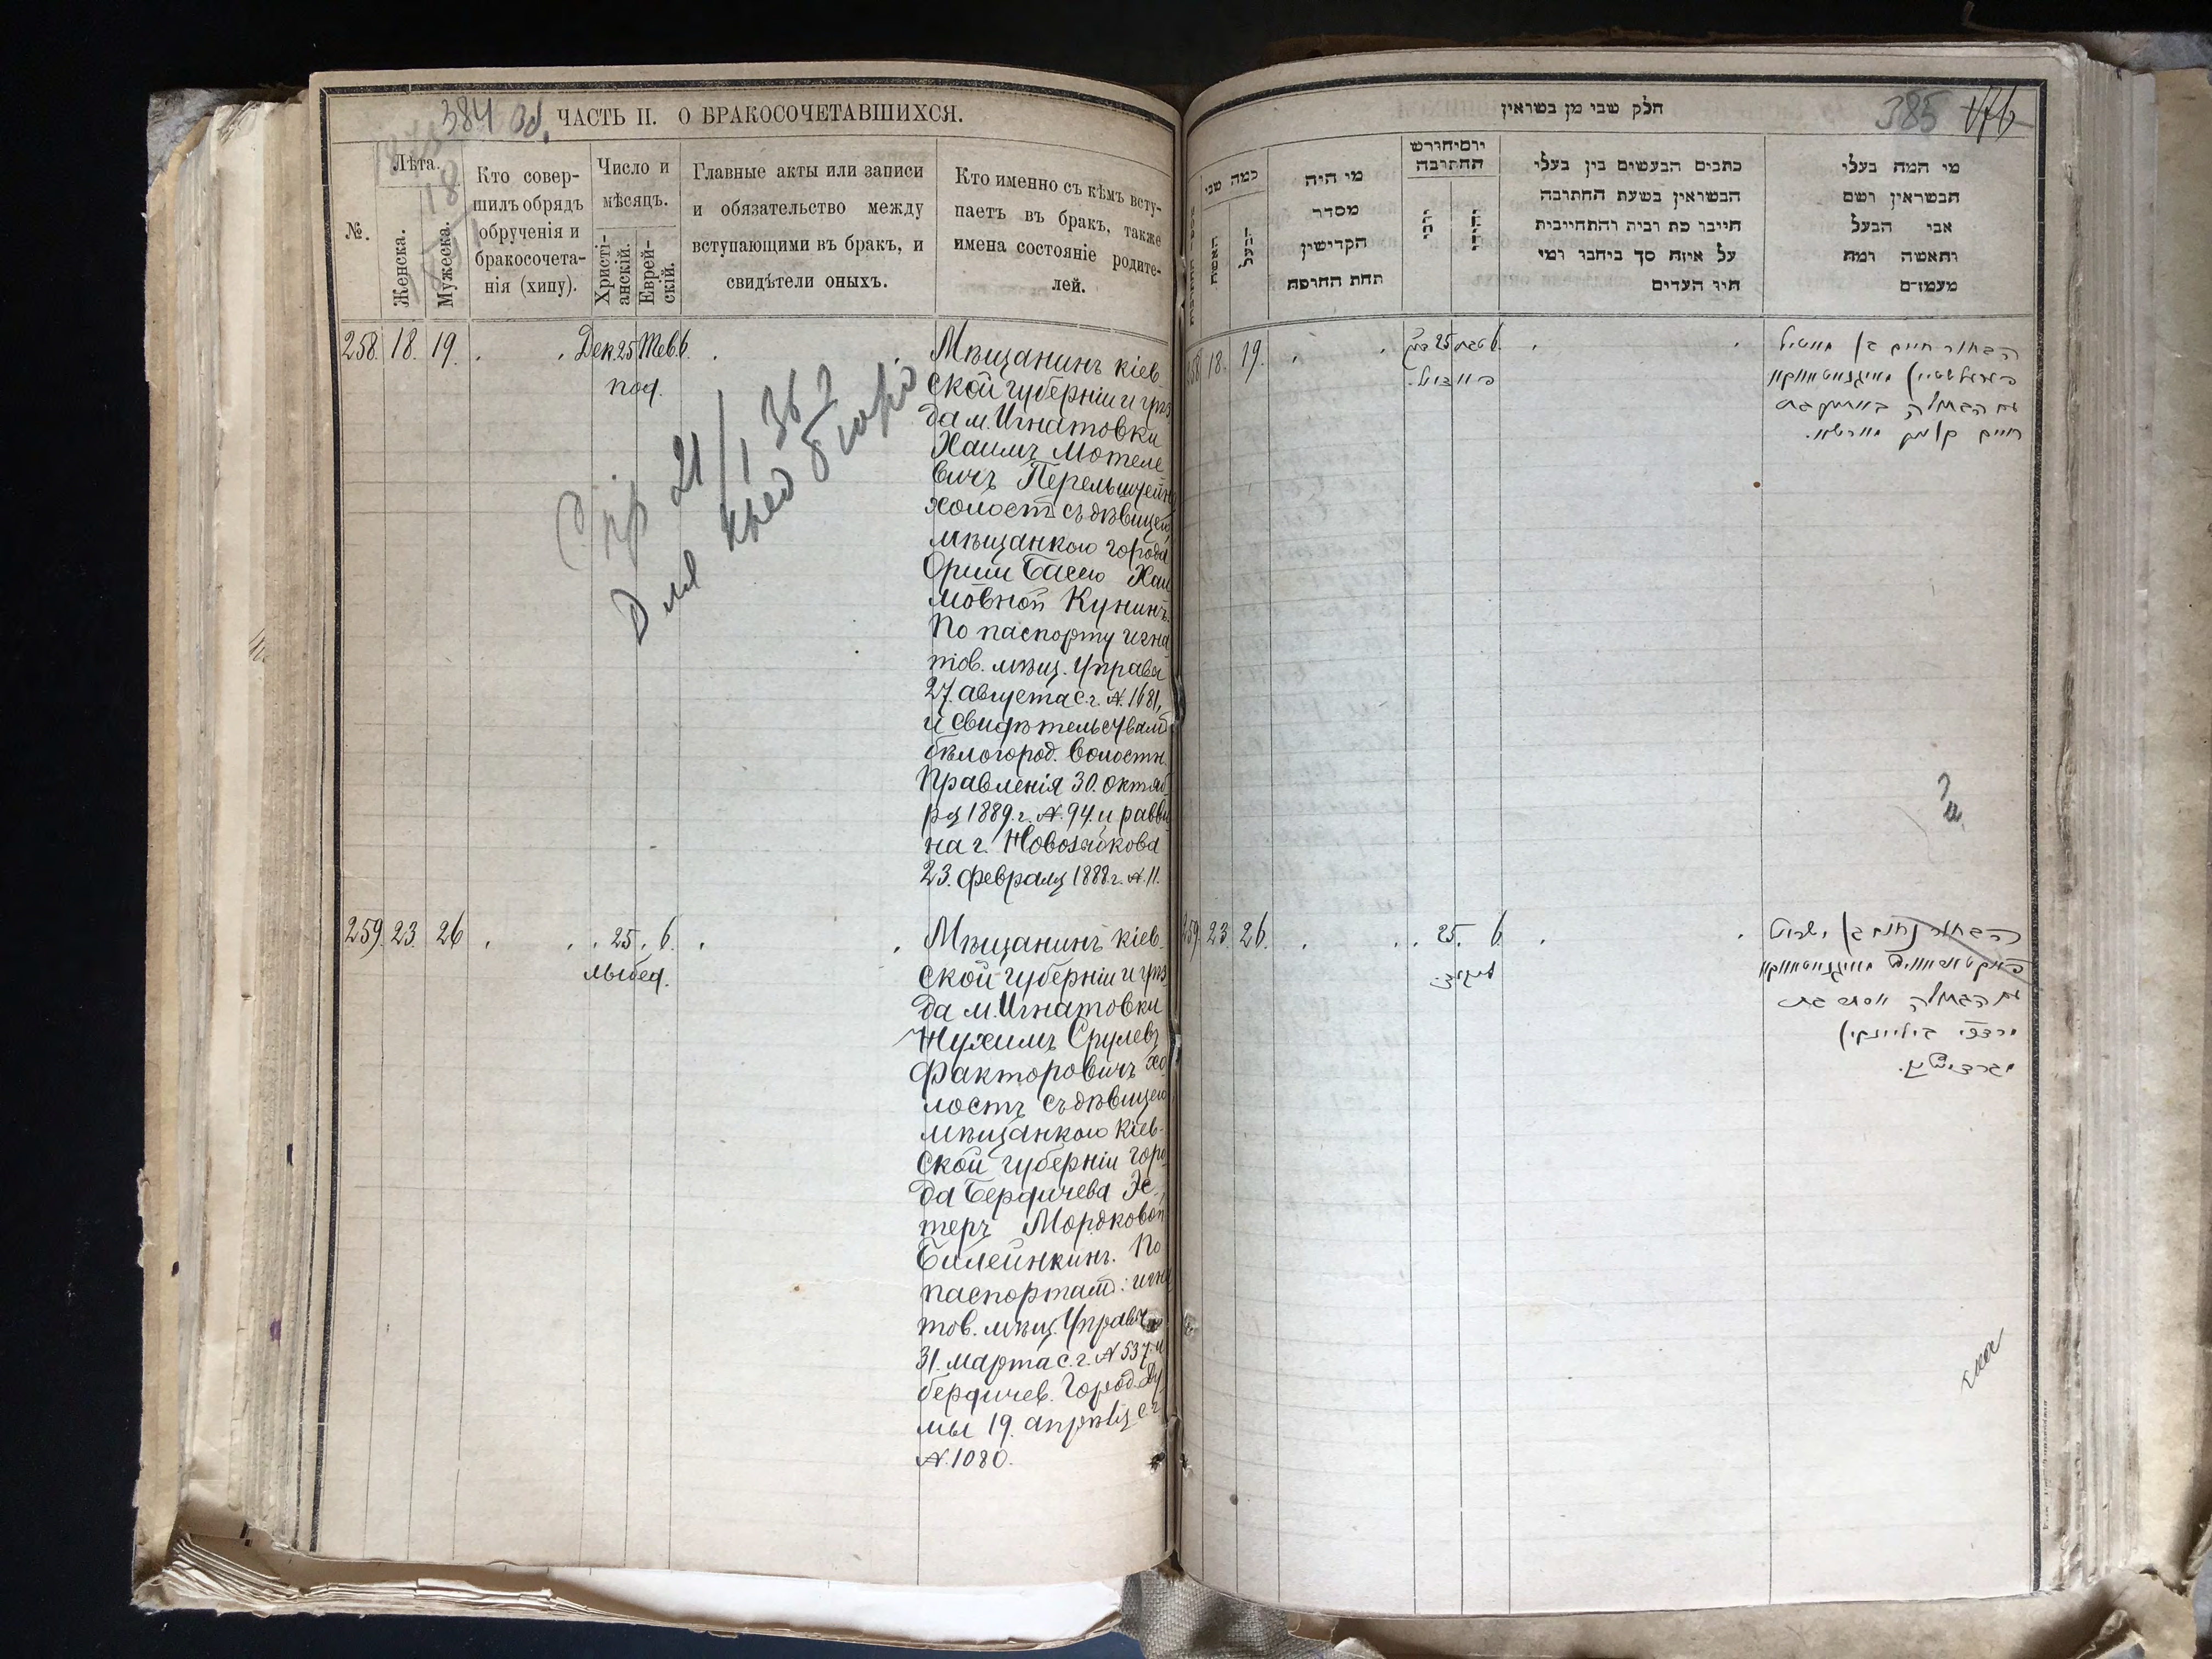 384 об.
ЧАСТЬ II. О БРАКОСОЧЕТАВШИХСЯ.
№.
Лѣта.
Женска.
Мужеска.
Кто совер-
шилъ обрядъ
обрученія и
бракосочета-
нія (хипу).
Число и
мѣсяцъ.
Христі-
анскій.
Еврей-
скій.
Главные акты или записи
и обязательство между
вступающими въ бракъ, и
свидѣтели оныхъ.
Кто именно съ кѣмъ всту-
паетъ въ бракъ, также
имена состояніе родите-
лей.
258. 18. 19. Дек. 25 Тев. 6.
под.
Мѣщанинъ кіев
ской губерніи и уѣз
да м. Игнатовки
Хаимъ Мотеле
вичъ Перельштейнъ
холостъ съ дѣвицею
мѣщанкою города
Орши Басею Хаи
мовной Кунинъ.
По паспорту игна
тов. мѣщ. Управы
27. августа с.г. №. 1681,
и свидѣтельствамъ
бѣлогород. Волостн.
Правленія 30. октяб
ря 1889. г. №. 94. и равви
на г. Новозыбкова
23. февраля 1888. г. №. 11.
Спр 21/I 36 г
Для
259. 23. 26 25. 6.
лыбед.
Мѣщанинъ кіев
ской губерніи и уѣз
да м. Игнатовки
Нухимъ Срулевъ
Факторовичъ хо
лостъ съ дѣвицею
мѣщанкою кіев-
ской губерніи горо
да Бердичева Эс-
теръ Мордковой
Билейнкинъ. По
паспортамъ: игна
тов. мѣщ. Управы
31. марта с.г. № 537 и
бердичев. Город. Ду
мы 19. апрѣля с.г.
№. 1080.
חלק שני מן נשואין
385 176
כמה שני
האשה
הבעל
מי היה
מסדר
הקדישין
תחת החופה
יום וחודש
החתונה
כתבים הנעשים בין בעלי
הנשואין בשעת החתונה
חייבו כת רביה והתחייבית
על איזה סך ביחבו ומי
היו העדים
מי המה בעלי
הנשואין ושם
אבי הבעל
והאשה ומה
מעמדם
258 18. 19. 25 טבת 6.
פאדאל.
הבחור חיים בן מוטיל
פערעלשטיין מאיגנאטאווקא
עם הבתולה באסע בת
חיים קונין מארשא.
259. 23. 26. 25. 6.
הבחור נחום בן ישראל
פאקטאראוויטש מאיגנאטאווקא
עם הבתולה אסתר בת
מרדכי ביליינקין
מברדיטשוב.